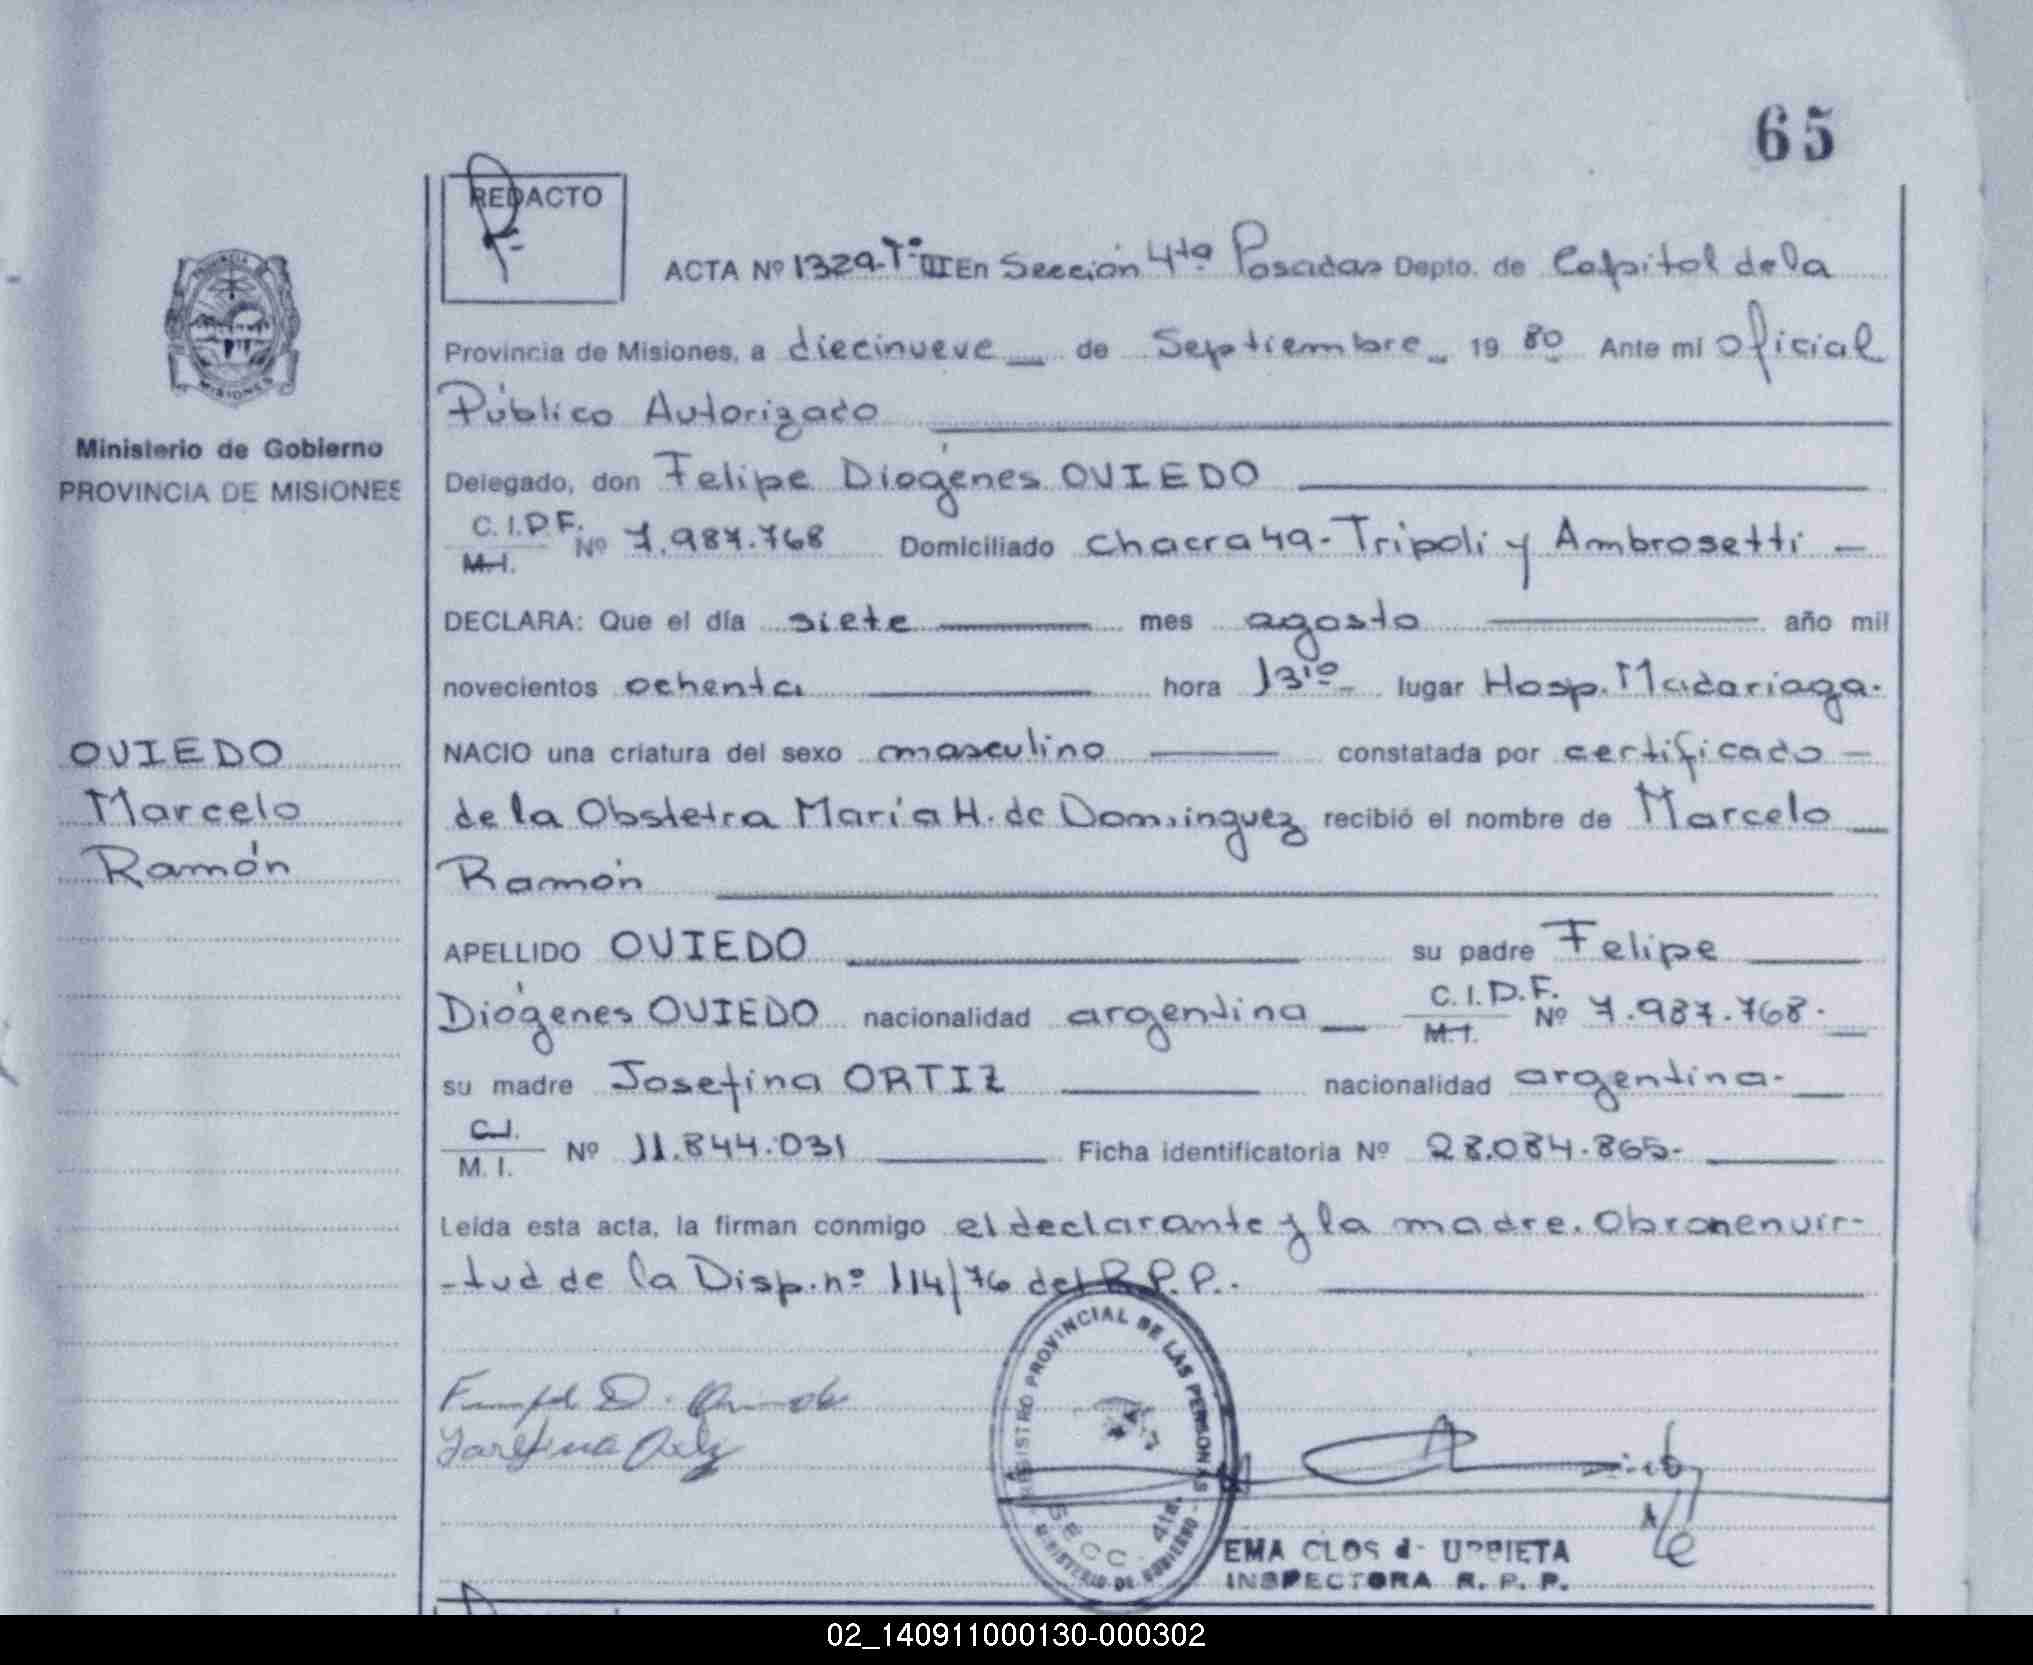 65
REDACTO
ACTA Nº 1329-Tº III En Sección 4ta Posadas Depto. de Capital de la
Provincia de Misiones, a diecinueve de Septiembre 1980 Ante mi oficial
Público Autorizado
Ministerio de Gobierno
PROVINCIA DE MISIONES
Delegado, don Felipe Diógenes OVIEDO
C.I.D.F. M.I. Nº 7.987.768 Domiciliado chacra 49-Tripoli y Ambrosetti -
DECLARA: Que el día siete mes agosto año mil
novecientos ochenta hora 13 10 lugar Hosp. Madariaga.
OVIEDO
Marcelo
Ramón
NACIO una criatura del sexo masculino constatada por certificado -
de la Obstetra María H. de Dominguez recibió el nombre de Marcelo
Ramón
APELLIDO OVIEDO su padre Felipe
Diógenes OVIEDO nacionalidad argentina C.I.D.F. M.I. Nº 7.987.768.
su madre Josefina ORTIZ nacionalidad argentina.
C.I. M.I. Nº 11.844.031 Ficha identificatoria Nº 28.084.865-
Leída esta acta, la firman conmigo el declarante y la madre. Obronenvir-
-tud de la Disp. nº 114/76 del R.P.P.
REGISTRO PROVINCIAL DE LAS PERSONAS
SECC. 4ta.
MINISTERIO DE GOBIERNO
EMA CLOS d- URRIETA
INSPECTORA R. P. P.
02_140911000130-000302